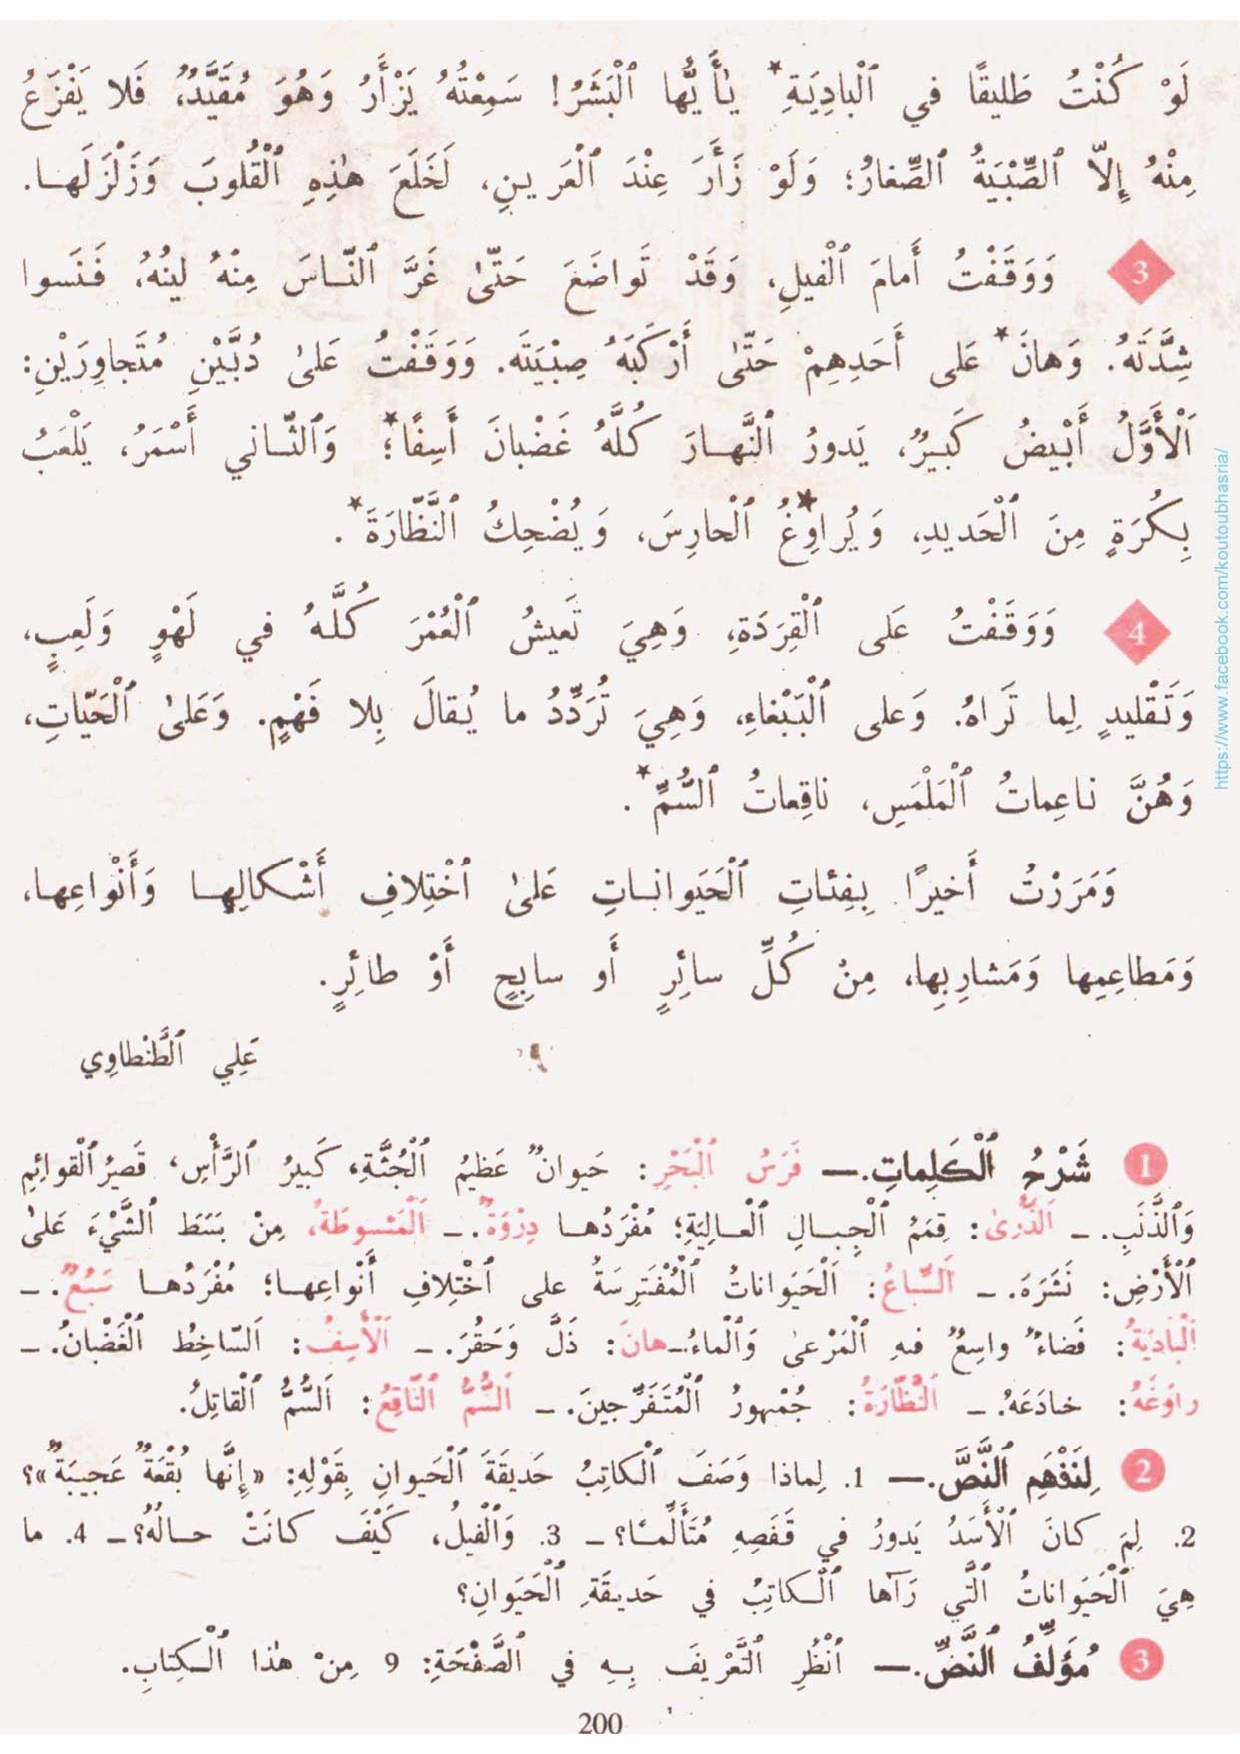 لَوْ كُنْتُ طَليقًا في ٱلْبادِيَةِ* يٰأَيُّها ٱلْبَشَرُ! سَمِعْتُهُ يَزْأَرُ وَهُوَ مُقَيَّدٌ، فَلا يَفْزَعُ
مِنْهُ إِلّا ٱلصِّبْيَةُ ٱلصِّغارُ؛ وَلَوْ زَأَرَ عِنْدَ ٱلْعَرينِ، لَخَلَعَ هٰذِهِ ٱلْقُلوبَ وَزَلْزَلَها.
3 وَوَقَفْتُ أَمامَ ٱلْفيلِ، وَقَدْ تَواضَعَ حَتّىٰ غَرَّ ٱلنّاسَ مِنْهُ لينُهُ، فَنَسوا
شِدَّتَهُ. وَهانَ* عَلى أَحَدِهِمْ حَتّىٰ أَرْكَبَهُ صِبْيَتَه. وَوَقَفْتُ عَلىٰ دُبَّيْنِ مُتَجاوِرَيْنِ:
اَلْأَوَّلُ أَبْيَضُ كَبيرٌ، يَدورُ ٱلنَّهارَ كُلَّهُ غَضْبانَ أَسِفًا*؛ وَٱلثّاني أَسْمَرُ، يَلْعَبُ
بِكُرَةٍ مِنَ ٱلْحَديدِ، وَيُراوِغُ* ٱلْحارِسَ، وَيُضْحِكُ ٱلنَّظّارَةَ*.
4 وَوَقَفْتُ عَلى ٱلْقِرَدَةِ، وَهِيَ تَعيشُ ٱلْعُمْرَ كُلَّهُ في لَهْوٍ وَلَعِبٍ،
وَتَقْليدٍ لِما تَراهُ. وَعلى ٱلْبَبْغاءِ، وَهِيَ تُرَدِّدُ ما يُقالَ بِلا فَهْمٍ. وَعَلىٰ ٱلْحَيّاتِ،
وَهُنَّ ناعِماتُ ٱلْمَلْمَسِ، ناقِعاتُ ٱلسُّمِّ*.
وَمَرَرْتُ أَخيرًا بِفِئاتِ ٱلْحَيَواناتِ عَلىٰ ٱخْتِلافِ أَشْكالِها وَأَنْواعِها،
وَمَطاعِمِها وَمَشارِبِها، مِنْ كُلِّ سائِرٍ أَو سابِحٍ أَوْ طائِرٍ.
عَلِي ٱلطَّنْطاوِي
1 شَرْحُ ٱلْكَلِماتِ.— فَرَسُ ٱلْبَحْرِ: حَيوانٌ عَظيمُ ٱلْجُثَّةِ، كَبيرُ ٱلرَّأْسِ، قَصيرُ ٱلْقوائِمِ
وَٱلذَّنَبِ. – اَلذُّرىٰ: قِمَمُ ٱلْجِبالِ ٱلْعالِيَةِ؛ مُفْرَدُها ذِرْوَةٌ. – اَلْمَبْسوطَةُ، مِنْ بَسَطَ ٱلشَّيْءَ عَلىٰ
ٱلْأَرْضِ: نَشَرَهَ. – اَلسِّباعُ: اَلْحَيَواناتُ ٱلْمُفْتَرِسَةُ على ٱخْتِلافِ أَنْواعِها؛ مُفْرَدُها سَبُعٌ. –
اَلْبادِيَةُ: فَضاءٌ واسِعٌ فيهِ ٱلْمَرْعىٰ وَٱلْماءُ.–هانَ: ذَلَّ وَحَقُرَ. – اَلْأَسِفُ: اَلسّاخِطُ ٱلْغَضْبانُ. –
راوَغَهُ: خادَعَهُ. – اَلنُّظّارَةُ: جُمْهورُ ٱلْمُتَفَرِّجينَ. – اَلسُّمُّ ٱلنّاقِعُ: اَلسُّمُّ ٱلْقاتِلُ.
2 لِنَفْهَمِ ٱلنَّصَّ.— 1. لِماذا وَصَفَ ٱلْكاتِبُ حَديقَةَ ٱلْحَيوانِ بِقَوْلِهِ: «إِنَّها بُقْعَةٌ عَجيبَةٌ»؟
2. لِمَ كانَ ٱلْأَسَدُ يَدورُ في قَفَصِهِ مُتَأَلِّمًا؟ – 3. وَٱلْفيلُ، كَيْفَ كانَتْ حالُهُ؟ – 4. ما
هِيَ ٱلْحَيَواناتُ ٱلَّتي رَآها ٱلْكاتِبُ في حَديقَةِ ٱلْحَيَوانِ؟
3 مُؤَلِّفُ ٱلنَّصِّ.— اُنْظُرِ ٱلتَّعْريفَ بِهِ في ٱلصَّفْحَةِ: 9 مِنْ هٰذا ٱلْكِتابِ.
200
https://www.facebook.com/koutoubhasria/